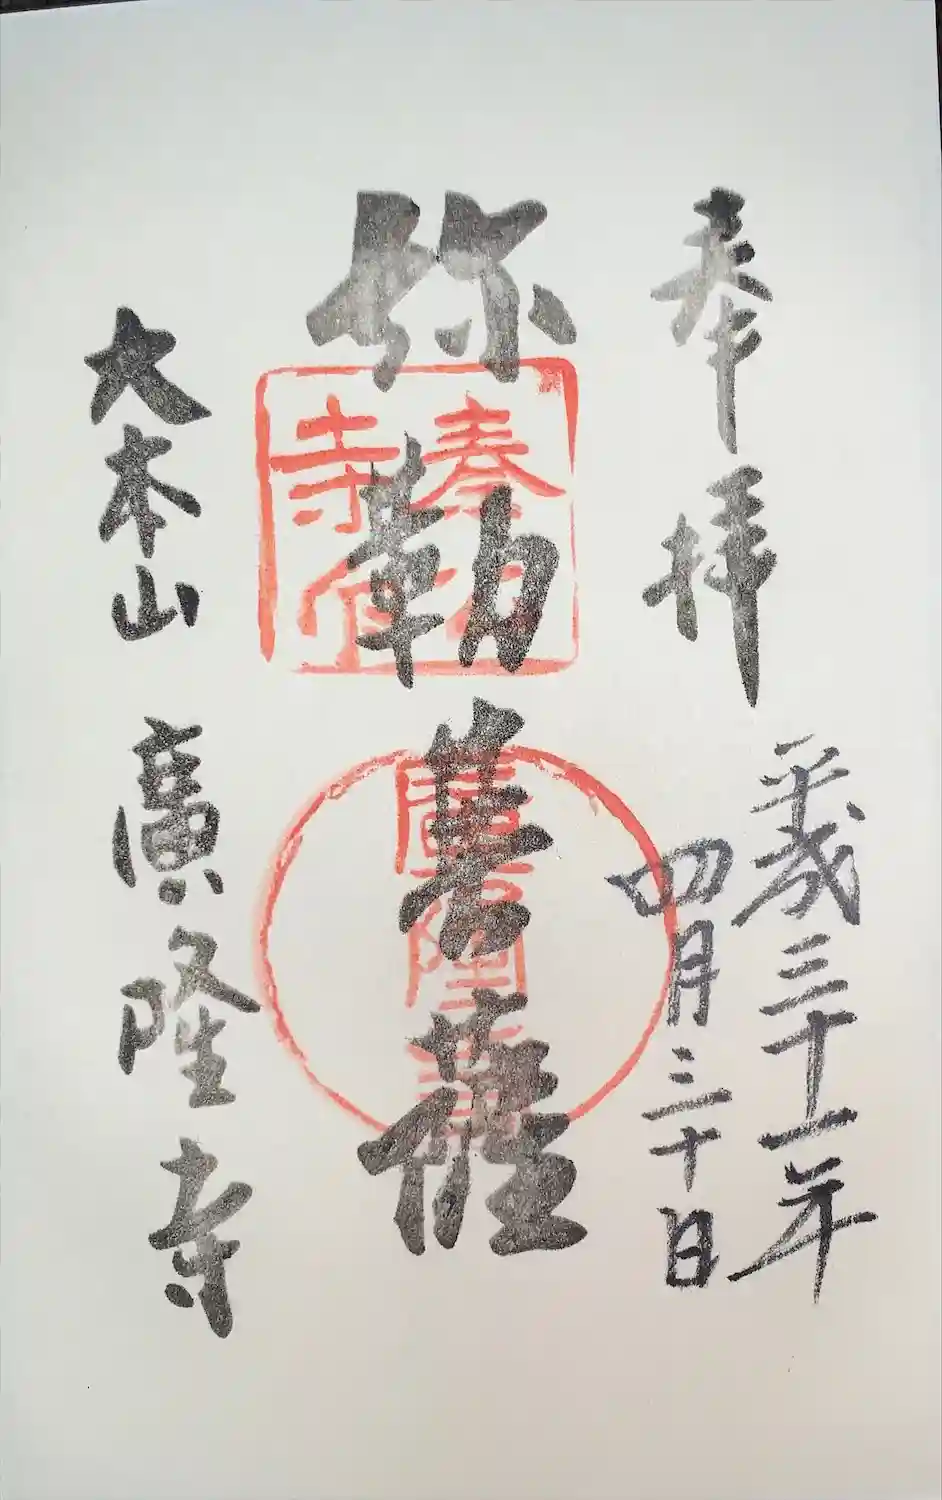 奉拝
平成三十一年
四月三十日
弥勒菩薩
大本山
廣隆寺
廣隆寺